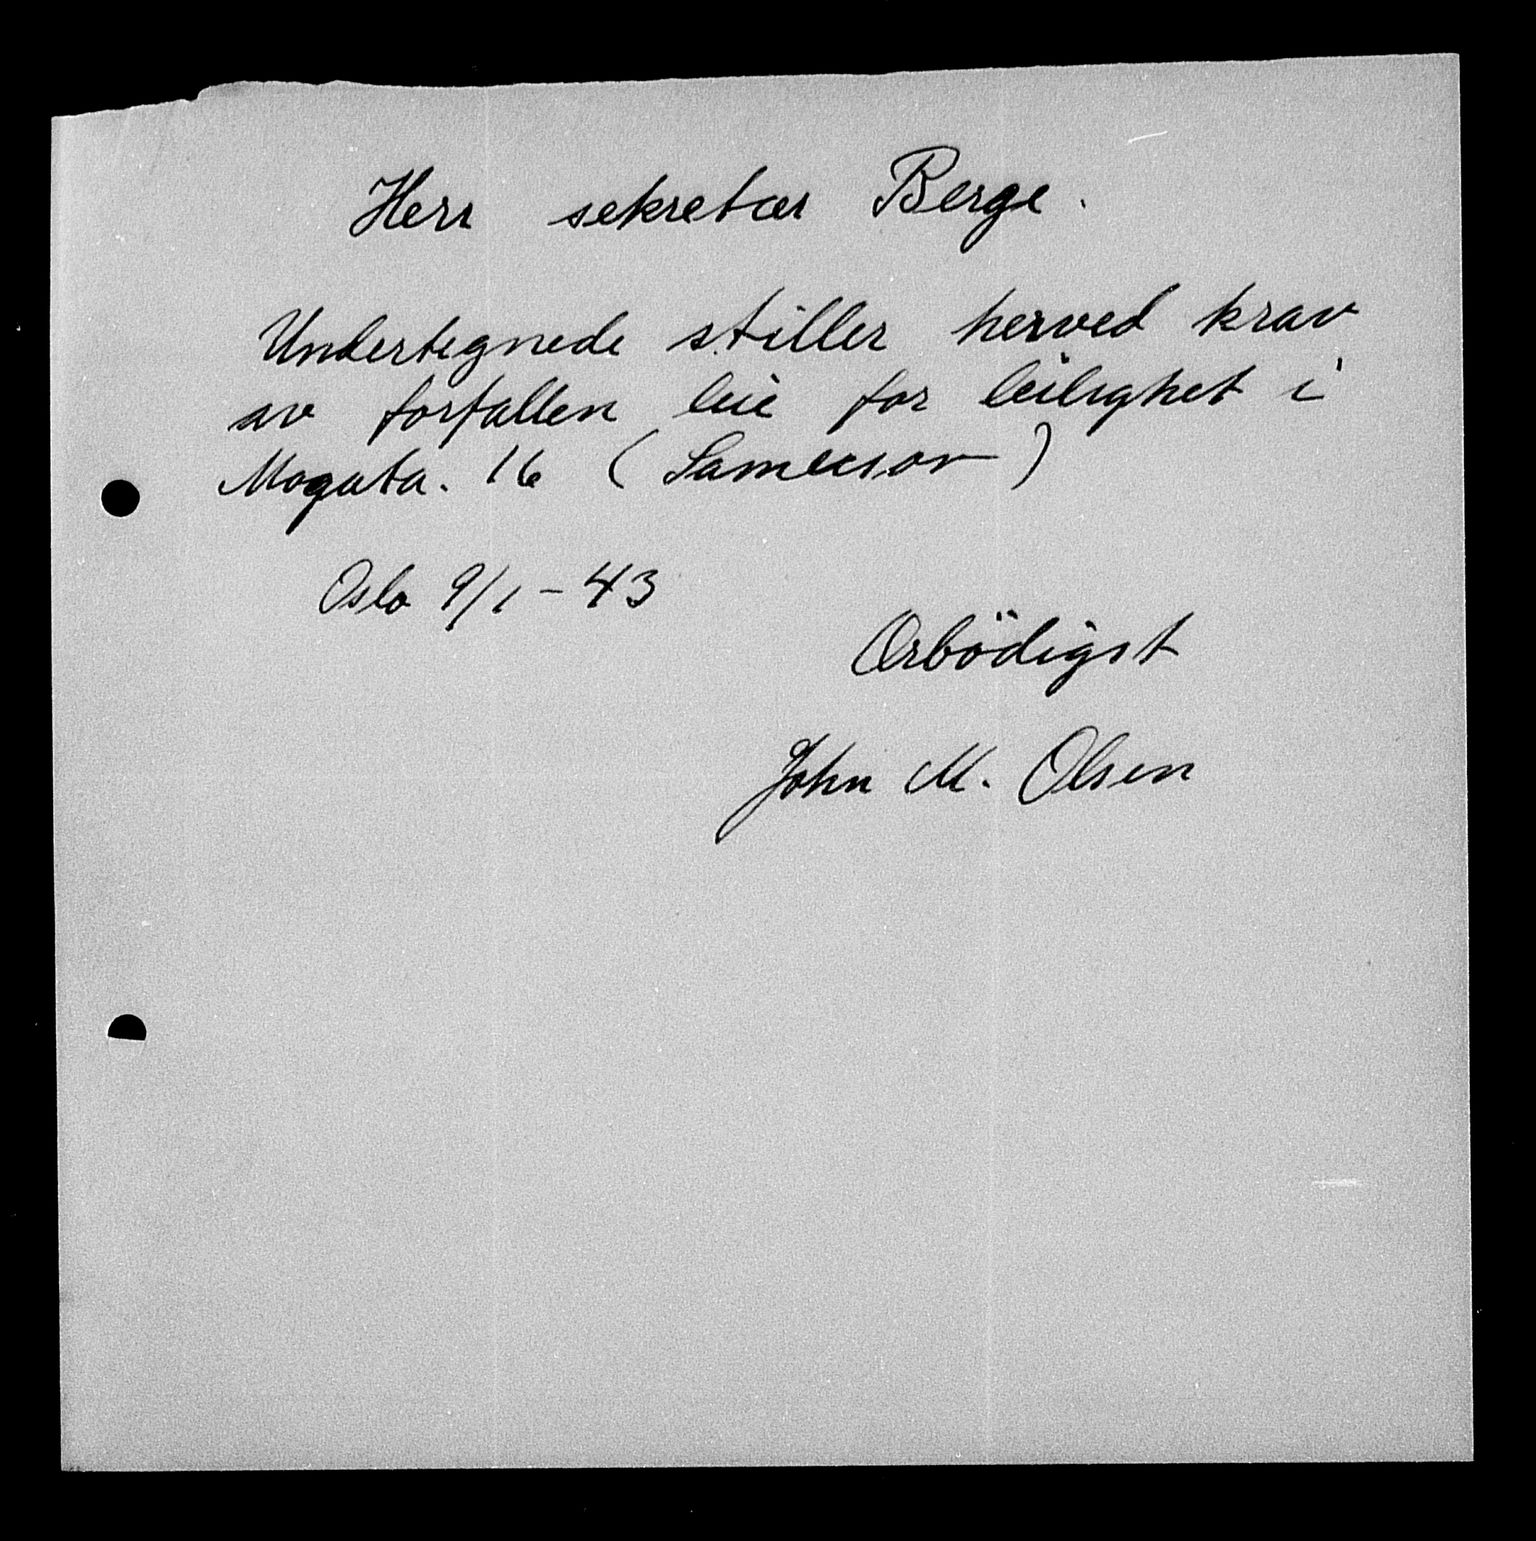 Herr sekretær Berge.
Undertegnede stiller herved krav
av forfallen leie for leilighet i
Mogata. 16 (Samuelson)
Oslo 9/1-43
Ærbödigst
John M. Olsen